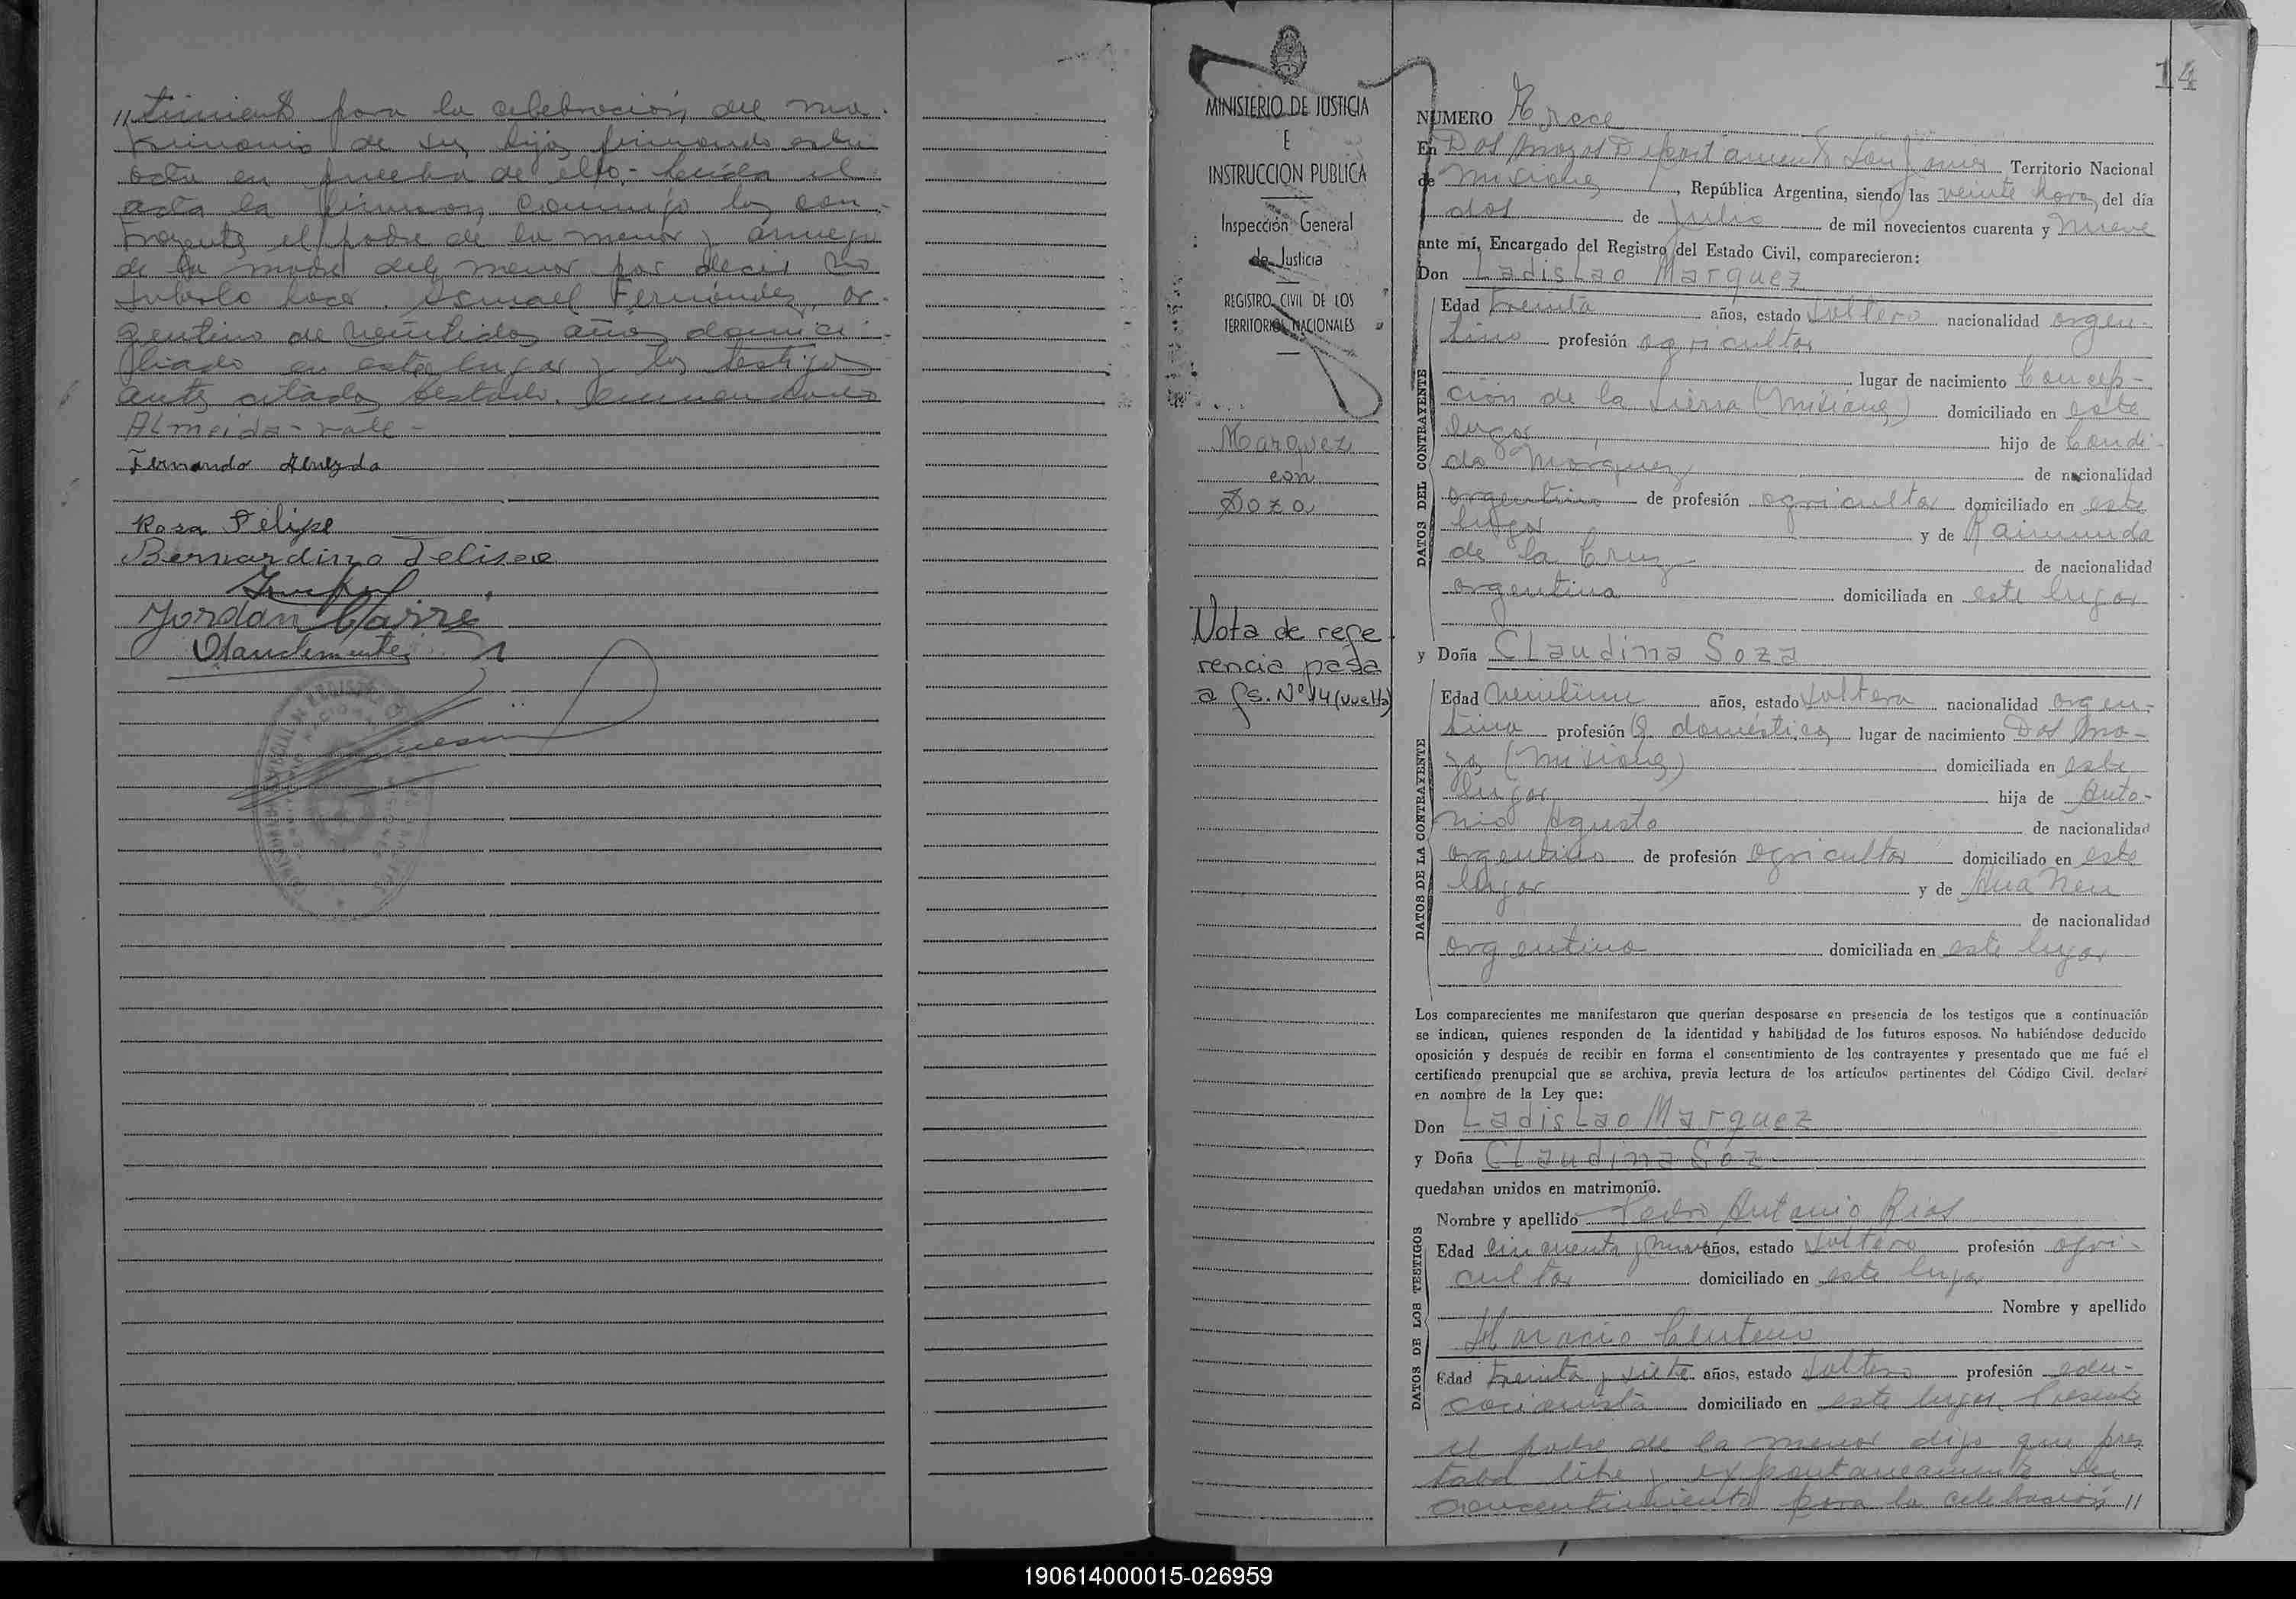 // timiento para la celebración del ma-
trimonio de su hija firmando esta
acta en prueba de ello.- Leída el
acta la firmaron conmigo los con-
trayentes el padre de la menor y a ruego
de la madre del menor por decir no
saberlo hacer Ismael Fernández ar-
gentino de veintidos años domici-
liado en este lugar y los testigos
antes citados
Almeida - vale -
Fernando
Rosa Felipe
Bernardino Felisee
Jordan
14
MINISTERIO DE JUSTICIA
E
INSTRUCCION PUBLICA
Inspección General
de Justicia
REGISTRO CIVIL DE LOS
TERRITORIOS NACIONALES
Marquez
con
Soza
Nota de refe
rencia pasa
a fs. Nº 14 (vuelta)
NUMERO Trece
En Dos Arroyos Departamento San Javier Territorio Nacional
de Misiones, República Argentina, siendo las veinte horas del día
dos de Julio de mil novecientos cuarenta y nueve
ante mí, Encargado del Registro del Estado Civil, comparecieron:
Don Ladislao Marquez
DATOS DEL CONTRAYENTE
Edad treinta años, estado soltero nacionalidad argen-
tino profesión agricultor
lugar de nacimiento Concep-
ción de la Sierra (Misiones) domiciliado en este
lugar hijo de Candi-
do Marquez de nacionalidad
argentino de profesión agricultor domiciliado en este
lugar y de Raimunda
de la Cruz de nacionalidad
argentina domiciliada en este lugar
y Doña Claudina Soza
DATOS DE LA CONTRAYENTE
Edad años, estado soltera nacionalidad argen-
tina profesión Q. domésticos lugar de nacimiento Dos Arro-
yos (Misiones) domiciliada en este
lugar hija de Anto-
nio Agusto de nacionalidad
argentino de profesión agricultor domiciliado en este
lugar y de Ana
de nacionalidad
argentina domiciliada en este lugar
Los comparecientes me manifestaron que querían desposarse en presencia de los testigos que a continuación
se indican, quienes responden de la identidad y habilidad de los futuros esposos. No habiéndose deducido
oposición y después de recibir en forma el consentimiento de los contrayentes y presentado que me fué el
certificado prenupcial que se archiva, previa lectura de los artículos pertinentes del Código Civil, declaré
en nombre de la Ley que:
Don Ladislao Marquez
y Doña Claudina Soz
quedaban unidos en matrimonio.
DATOS DE LOS TESTIGOS
Nombre y apellido Pedro Antonio Rios
Edad cincuenta y nueve años, estado soltero profesión agri-
cultor domiciliado en este lugar
Nombre y apellido
Horacio Centeno
Edad treinta y siete años, estado soltero profesión edu-
cacionista domiciliado en este lugar Presente
el padre de la menor dijo que pres
taba libre y expontaneamente su
concentimiento para la celebración //
190614000015-026959